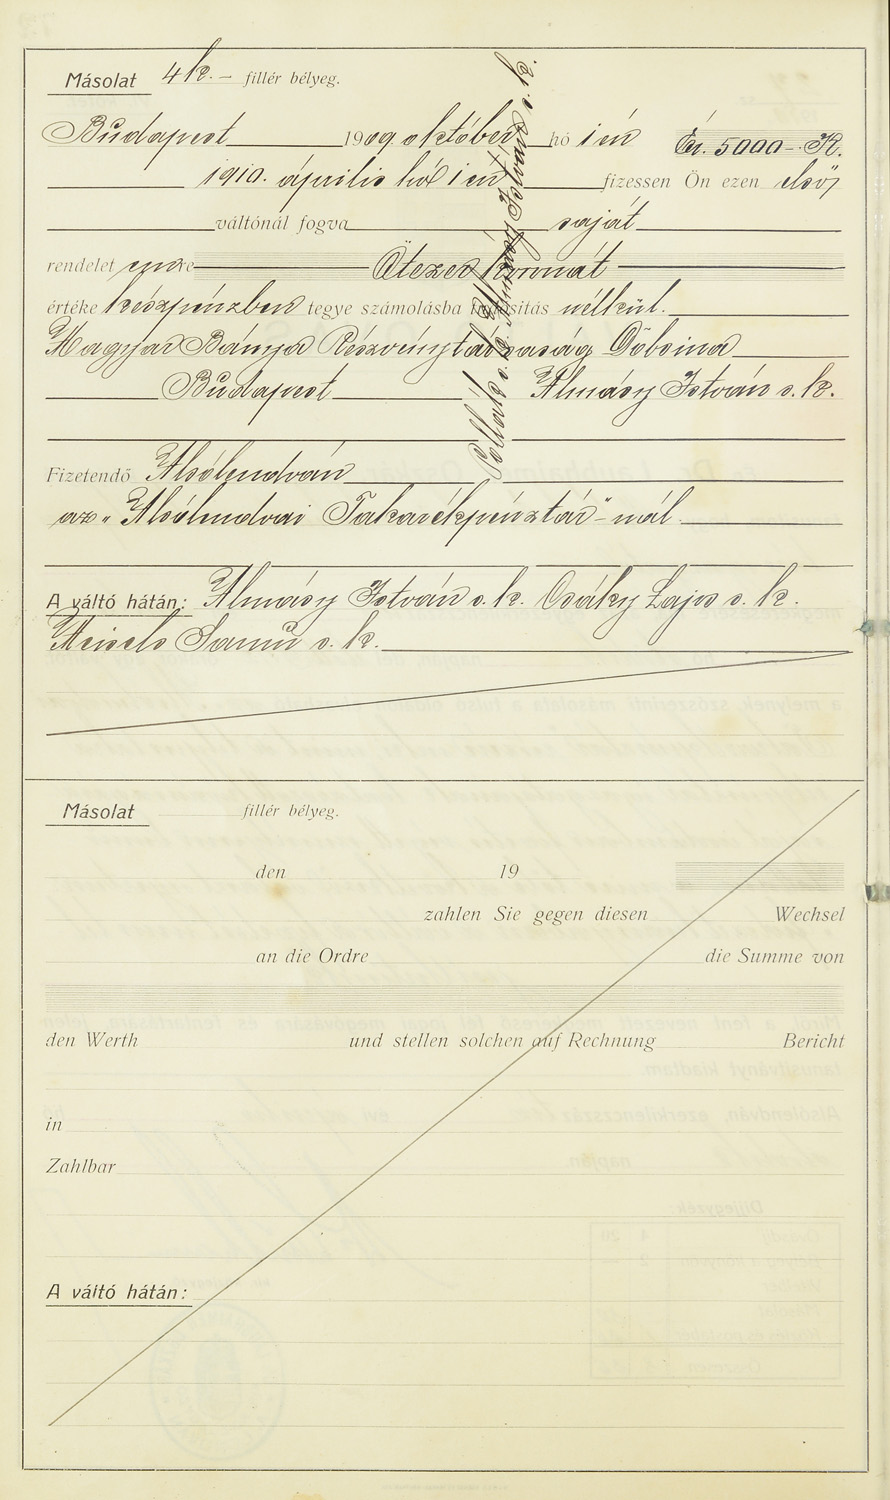 Másolat 4 k. – fillér bélyeg.
Budapest 1909 október hó 1 én Ér. 5000 – K.
1910. április hó 1 én fizessen Ön ezen első
váltónál fogva saját
rendeletemre Ötezer koronát
értéke készpénzben tegye számolásba nélkül.
Magyar Bánya Részvénytársaság Dobsina
Budapest Almásy István s. k.
Pollák s. k. Almásy István s. k.
Fizetendő Alsólendván
az „Alsólendvai Takarékpénztár"-nál.
A váltó hátán: Almásy István s. k. Csáky Lajos s. k.
Samu s. k.
Másolat fillér bélyeg.
den 19
zahlen Sie gegen diesen Wechsel
an die Ordre die Summe von
den Werth und stellen solchen auf Rechnung Bericht
in
Zahlbar
A váltó hátán: